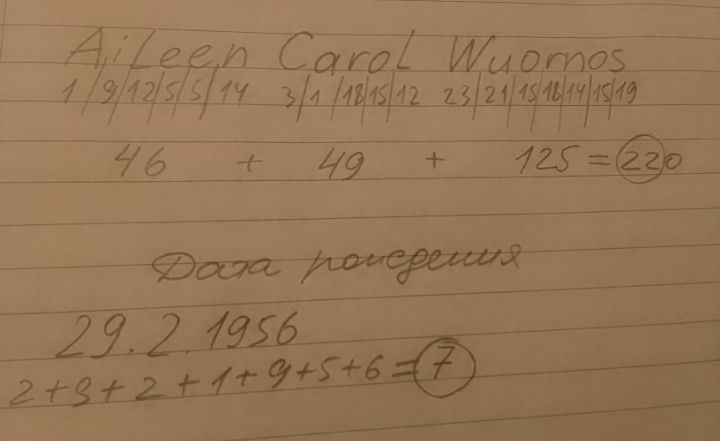 Aileen Carol Wuornos
1/9/12/5/5/14 3/1/18/15/12 23/21/15/18/14/15/19
46 + 49 + 125 = 220
Дата рождения
29.2.1956
2+9+2+1+9+5+6=7